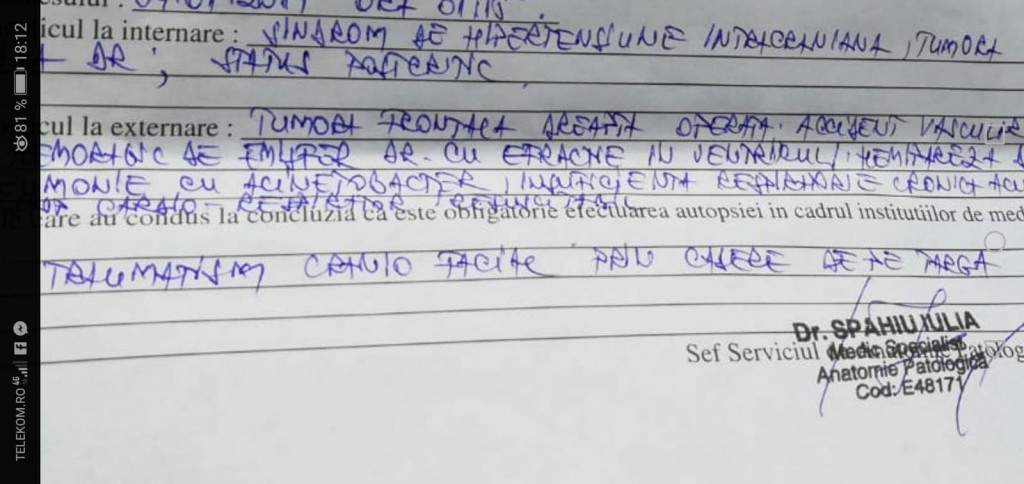 icul la internare : SINDROM DE HIPERTENSIUNE INTRACRANIANA, TUMORA
DR ; STATUS POSTCRITIC
cul la externare : TUMORA FRONTALA DREAPTA OPERATA. ACCIDENT VASCULAR
EMORAGIC DE EMISFER DR. CU EFRACTIE IN VENTRICUL, HEMIPAREZA
UMONIE CU ACINETOBACTER, INSUFICIENTA RESPIRATORIE CRONICA ACU
CARDIO-RESPIRATOR
care au condus la concluzia ca este obligatorie efectuarea autopsiei in cadrul institutiilor de med
TRAUMATISM CRANIO FACIAL PRIN CADERE DE PE TARGA
Dr. SPAHIU IULIA
Sef Serviciul
Medic Specialist
Anatomie Patologica
Cod: E48171
18:12
81 %
TELEKOM.RO 4G